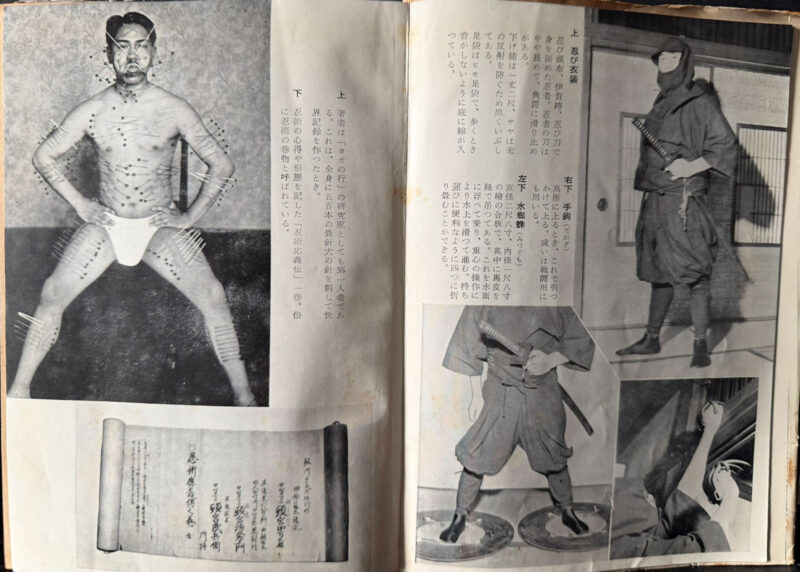 上 忍び衣装
忍び頭布、伊賀袴、忍び刀で
身を固めた忍者。忍者の刀は
やや長めで、角鍔に滑り止め
がある。
下げ緒は一丈二尺、サヤは光
の反射を防ぐため黒くいぶし
てある。
足袋はヒモ足袋で、歩くとき
音がしないように底に綿が入
つている。
右下 手鈎(てかぎ)
高所に上るとき、これで引つ
かけて上る。或いは戦闘用に
も用いる。
左下 水蜘蛛(みづぐも)
直径二尺八寸、内径一尺八寸
の檜の合板で、真中に馬皮を
紐で吊つてある。これを水面
に浮べて乗り、重心の操作に
より水上を滑つて進む。持ち
運びに便利なように四つに折
り畳むことができる。
上 著者は「ヨガの行」の研究家としても第一人者であ
る。これは、全身に五百本の畳針大の針を刺して世
界記録を作つたとき。
下 忍術の心得や形態を記した「忍術応義伝」一巻。俗
に忍術の巻物と呼ばれている。
忍術應義傳之巻 全